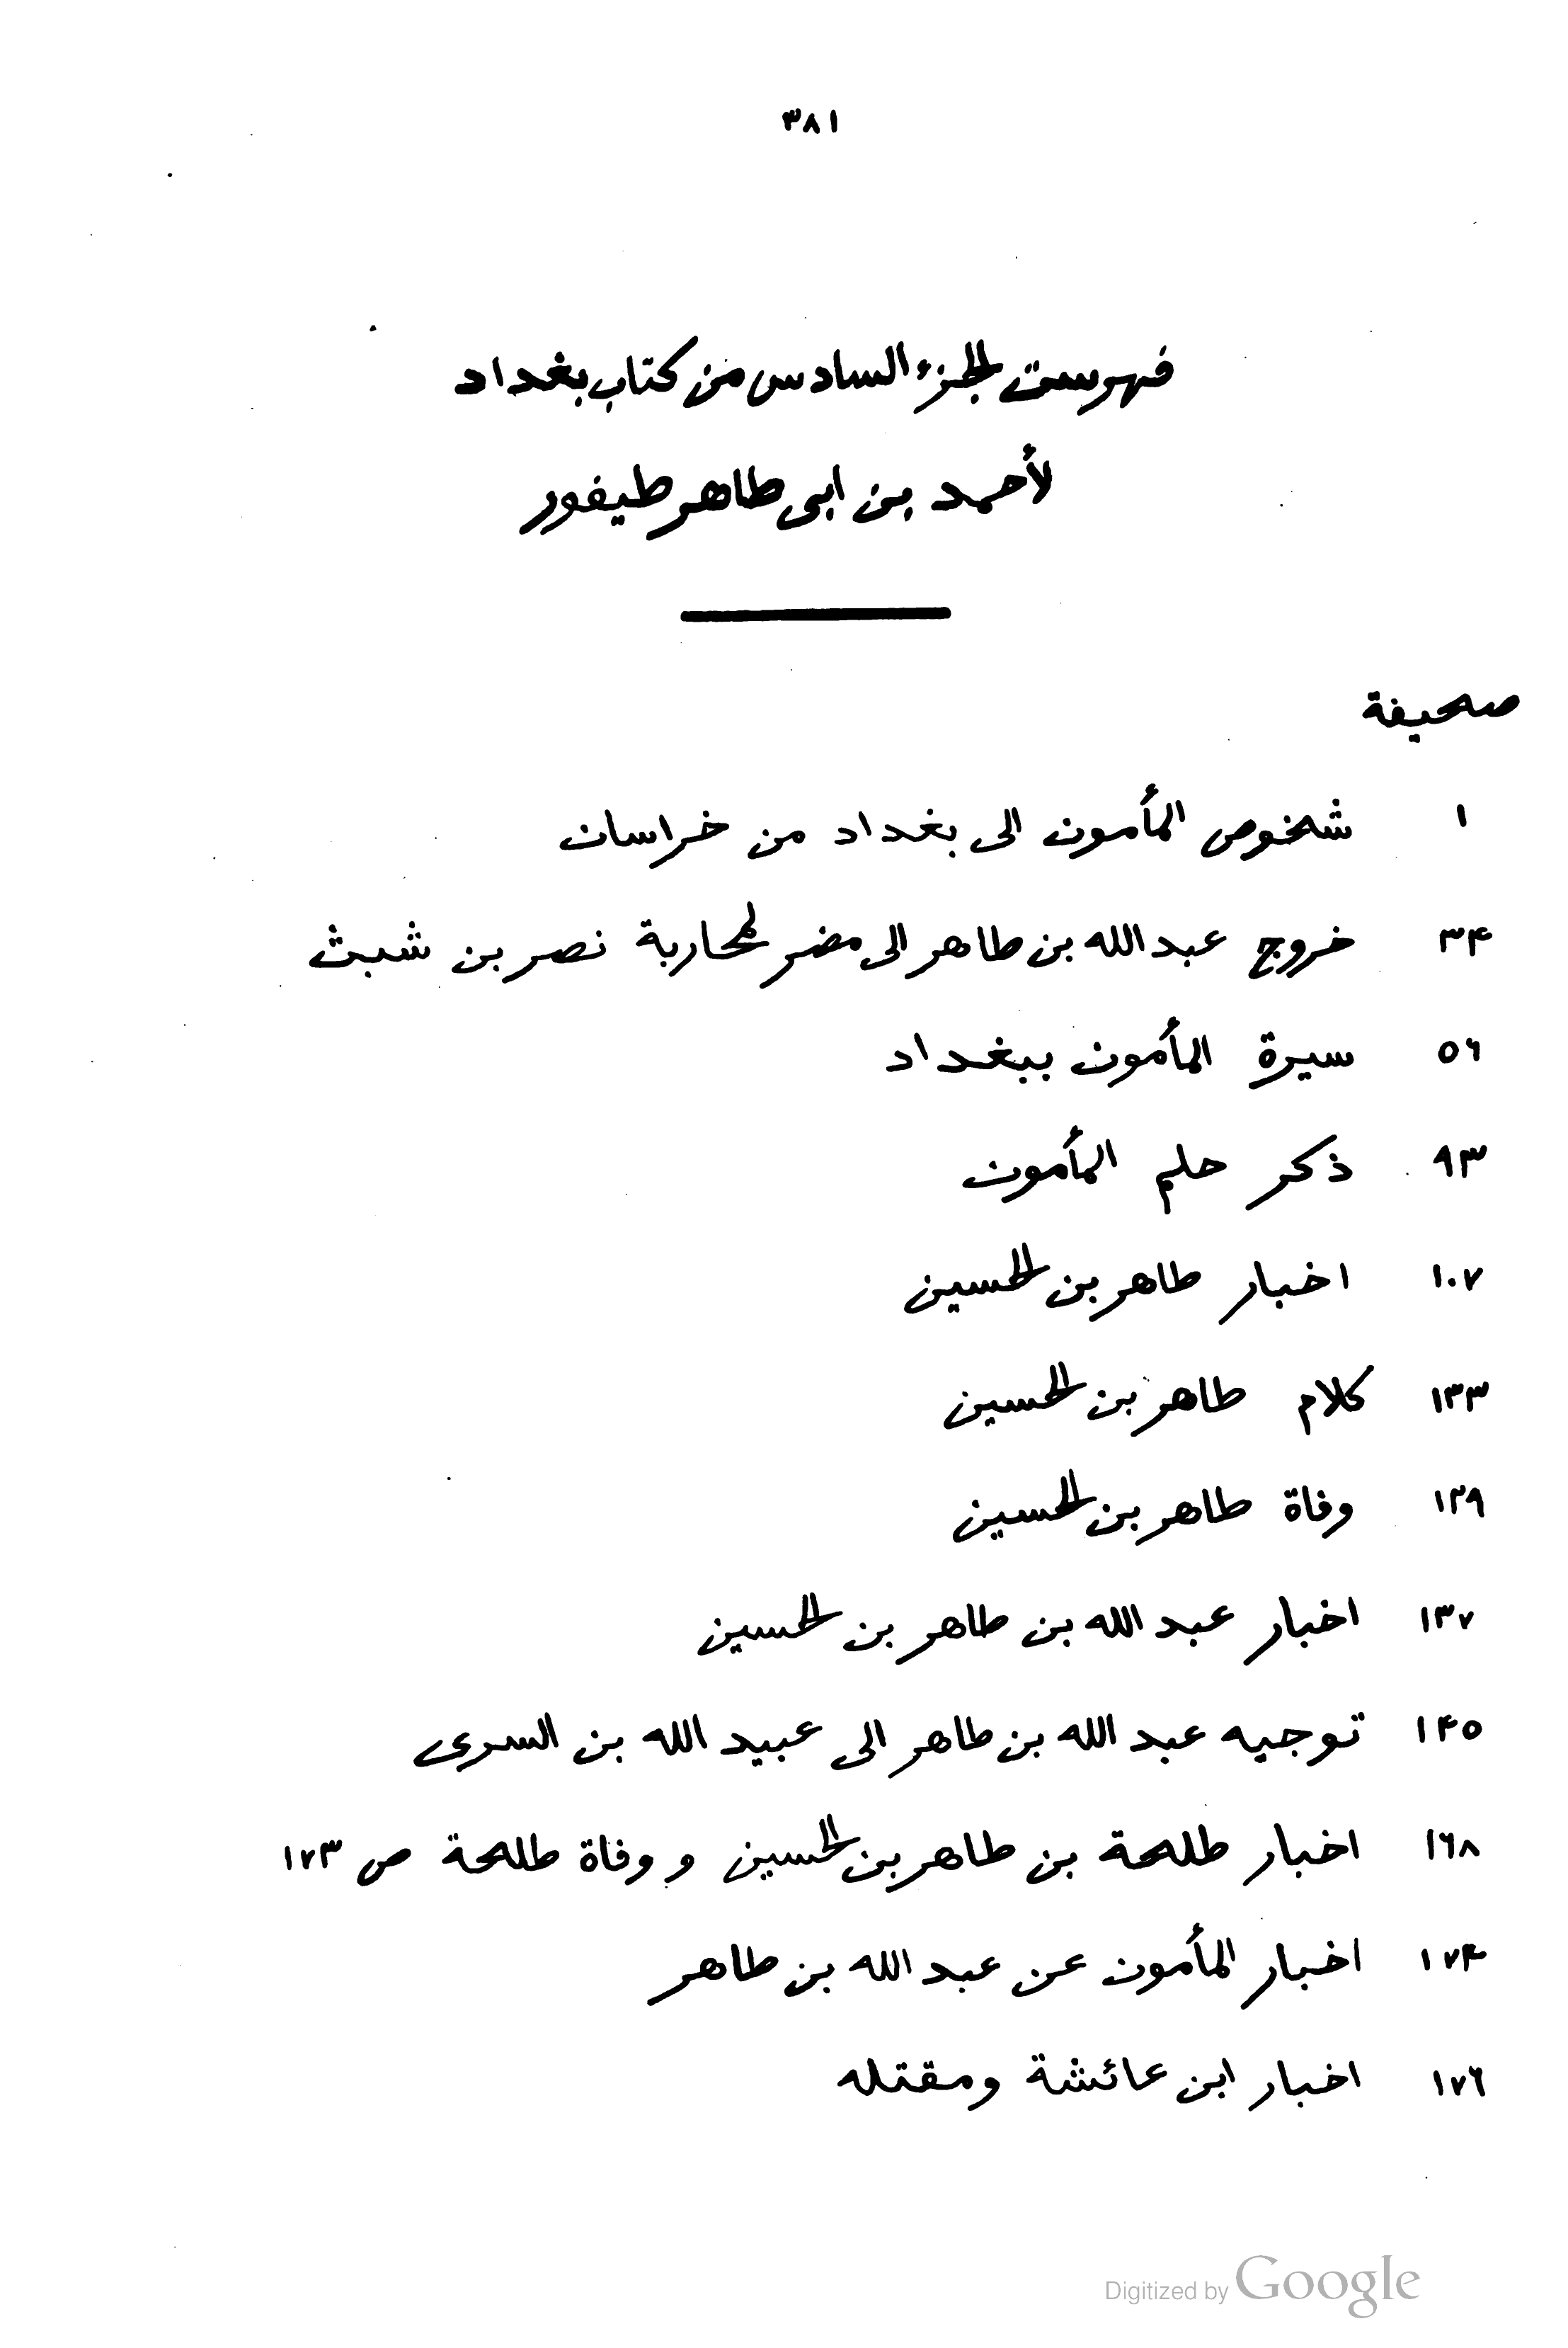 ٣٨١
فهرست الجزء السادس من كتاب بغداد
لأحمد بن ابى طاهر طيفور
صحيفة
١ شخوص المأمون الى بغداد من خراسان
٣٤ خروج عبد الله بن طاهر الى مضر لمحاربة نصر بن شبث
٥٦ سيرة المأمون ببغداد
٩٣ ذكر حلم المأمون
١٠٧ اخبار طاهر بن الحسين
١٣٣ كلام طاهر بن الحسين
١٢٩ وفاة طاهر بن الحسين
١٣٧ اخبار عبد الله بن طاهر بن الحسين
١٤٥ توجيه عبد الله بن طاهر الى عبيد الله بن السرى
١٦٨ اخبار طلحة بن طاهر بن الحسين و وفاة طلحة ص ١٧٣
١٧٤ اخبار المأمون عن عبد الله بن طاهر
١٧٦ اخبار ابن عائشة ومقتله
Digitized by Google